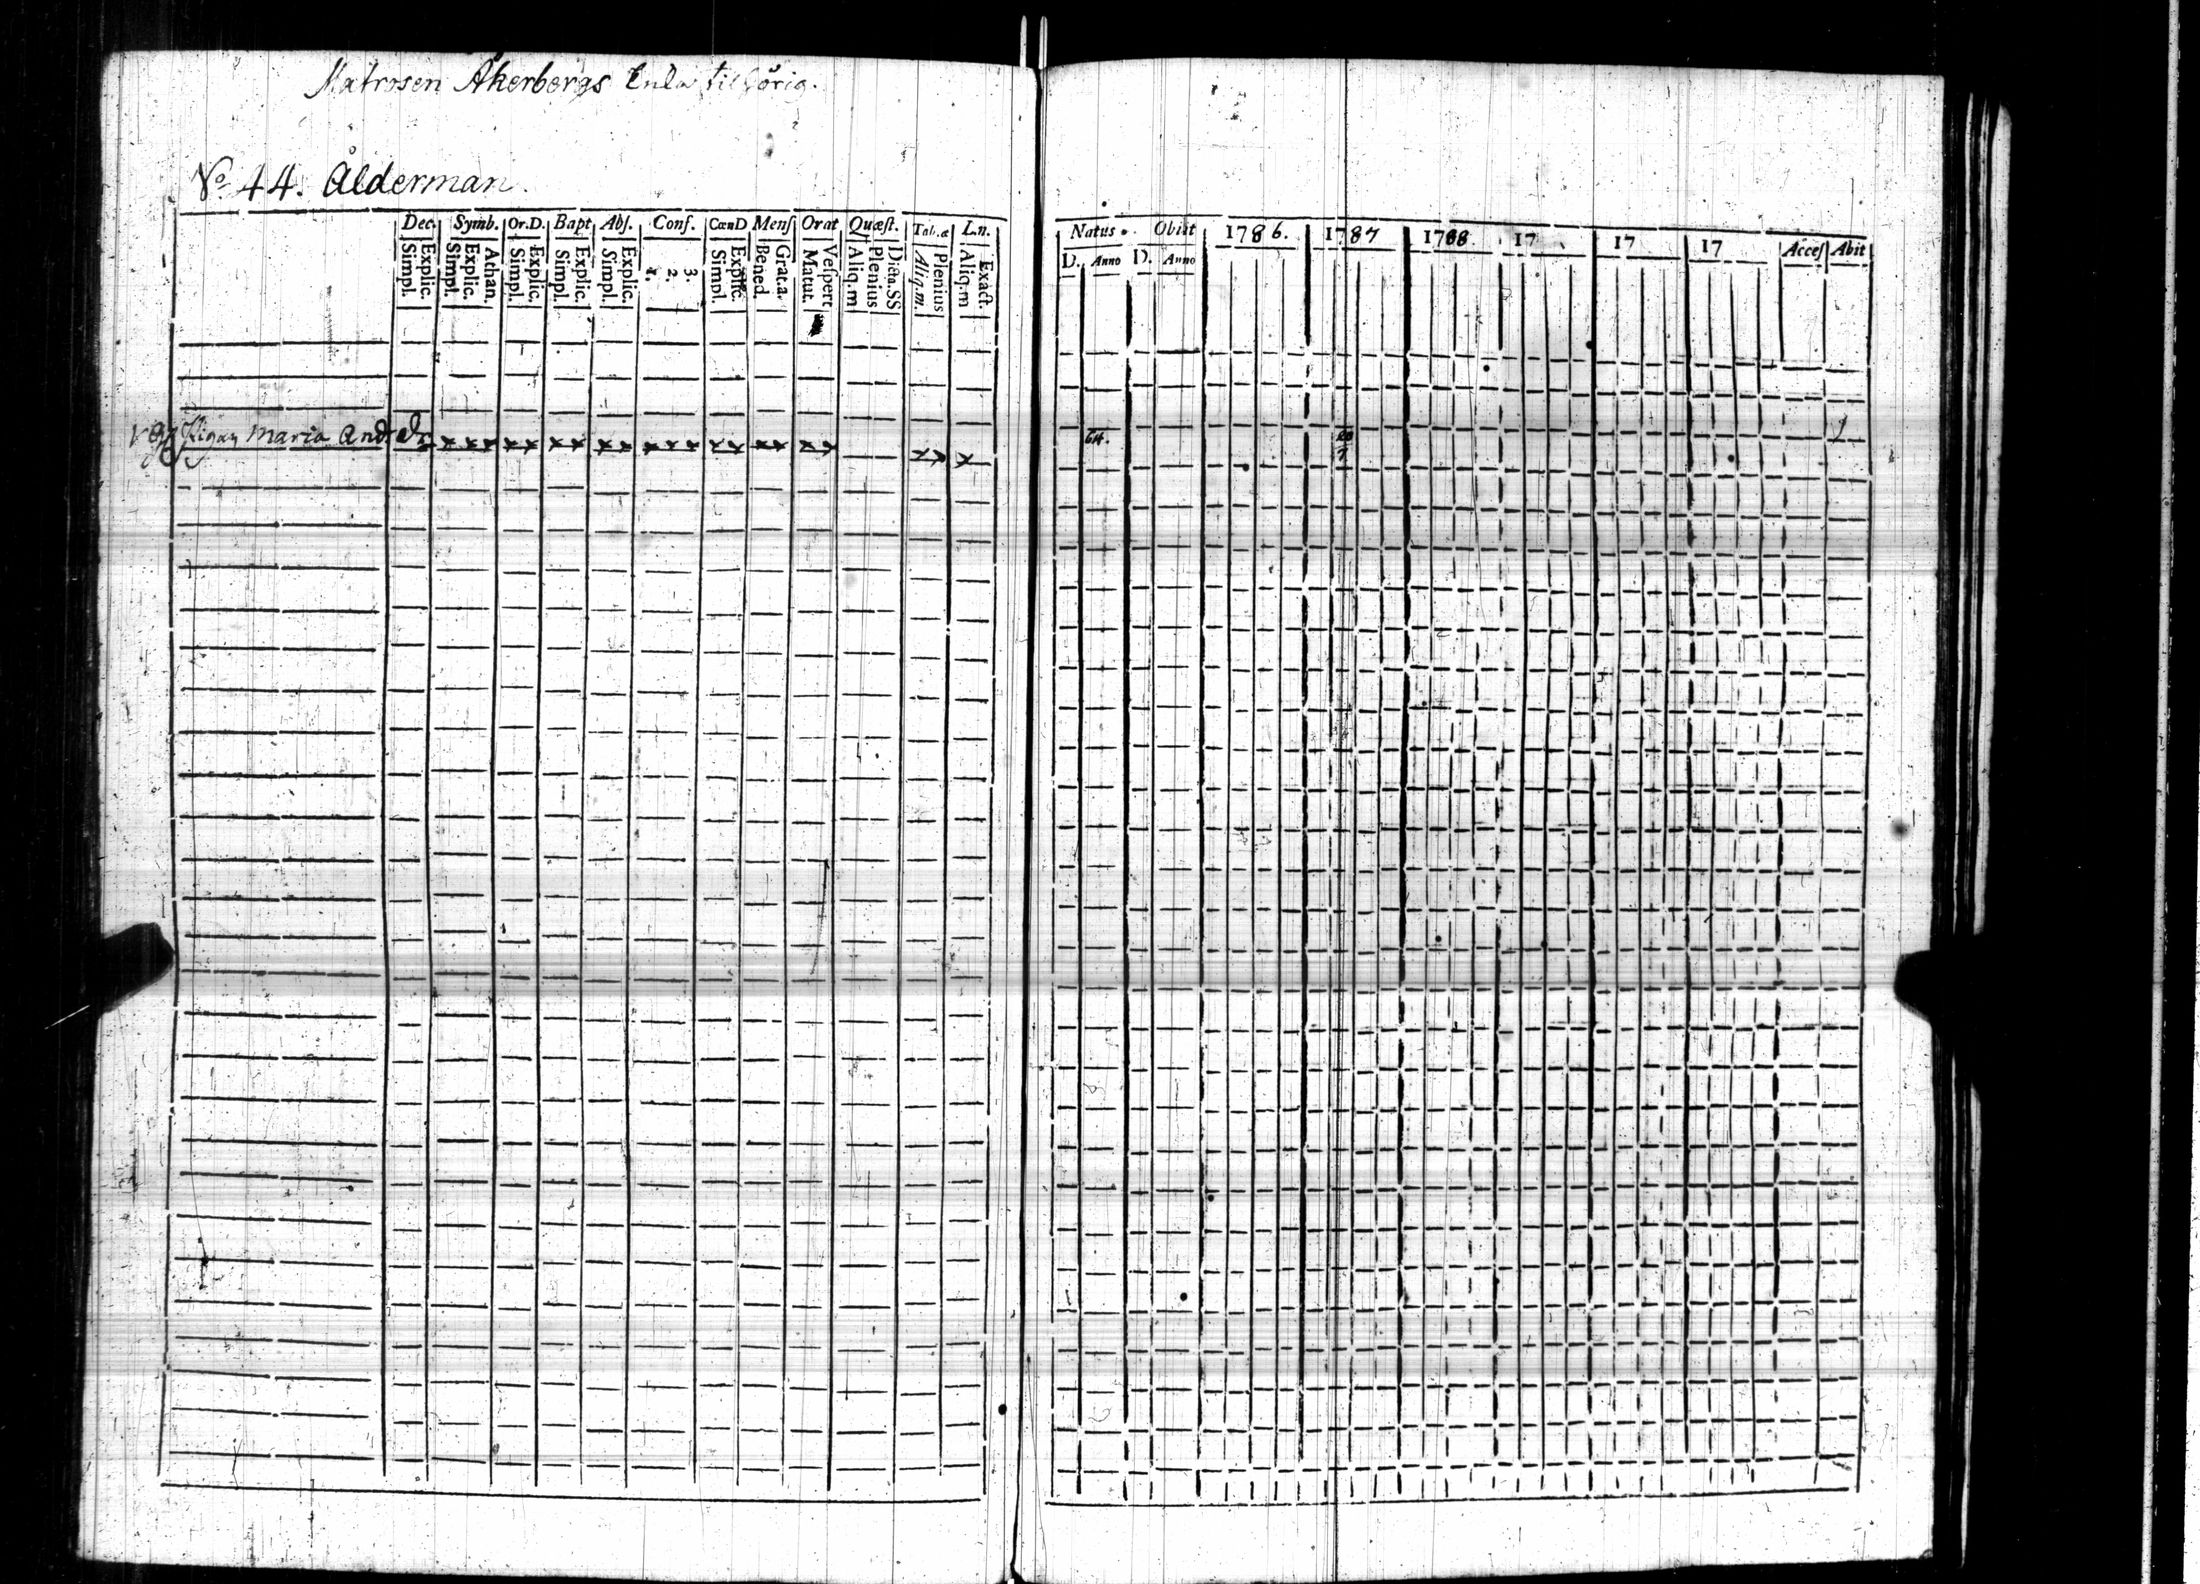 Matrosen Åkerbergs Enka tilhörig.
No 44. Ålderman
Dec. Symb. Or.D. Bapt Abs. Conf. CœnD Mens Orat Quæst. Tab. œ L.n.
Explic. Simpl. Athan. Explic. Simpl. Explic. Simpl. Explic. Simpl. Explic. Simpl. 3. 2. 1. Explic. Simpl. Grat.a. Bened. Vespert Matut. Dicta.SS Plenius Aliq.m Plenius Aliq.m. Exact. Aliq.m
Natus Obiit 1786. 1787 1788 17 17 17 Acces Abit
D. Anno D. Anno
Pigan Maria And. dr x x x x x x x x x x x x x x x x x x x x x 64. 1